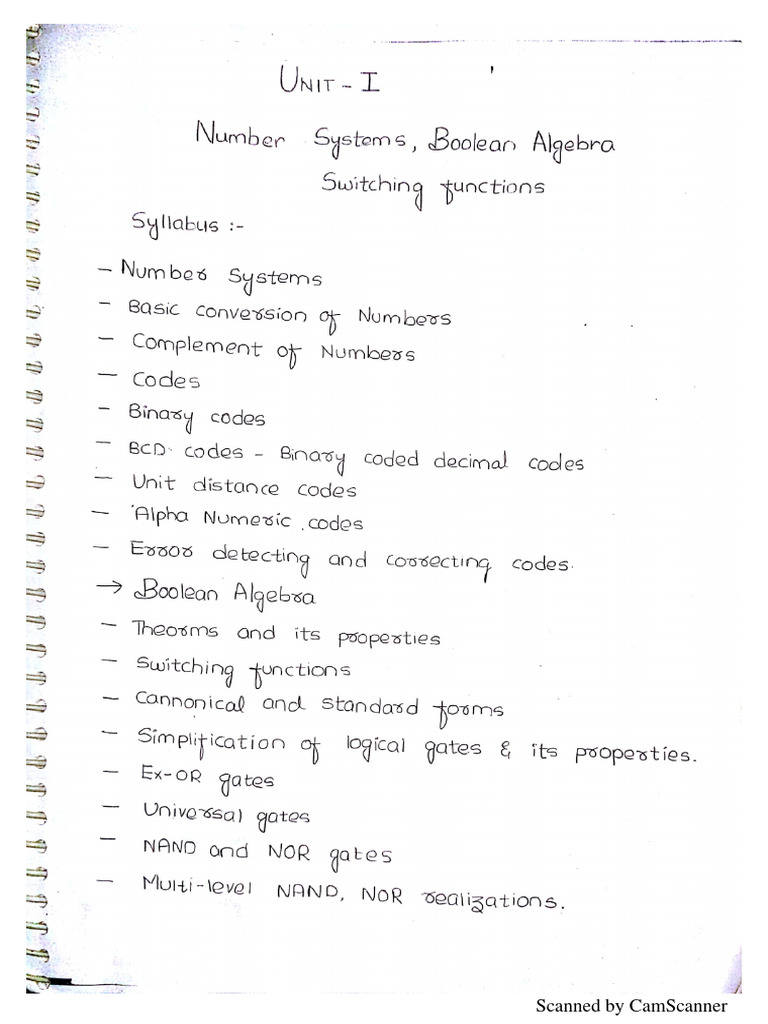 UNIT - I
Number Systems, Boolean Algebra
Switching functions
Syllabus :-
- Number Systems
- Basic conversion of Numbers
- Complement of Numbers
- Codes
- Binary codes
- BCD codes - Binary coded decimal codes
- Unit distance codes
- Alpha Numeric codes
- Error detecting and correcting codes.
→ Boolean Algebra
- Theorms and its properties
- Switching functions
- Cannonical and standard forms
- Simplification of logical gates & its properties.
- Ex-OR gates
- Universal gates
- NAND and NOR gates
- Multi-level NAND, NOR realizations.
Scanned by CamScanner